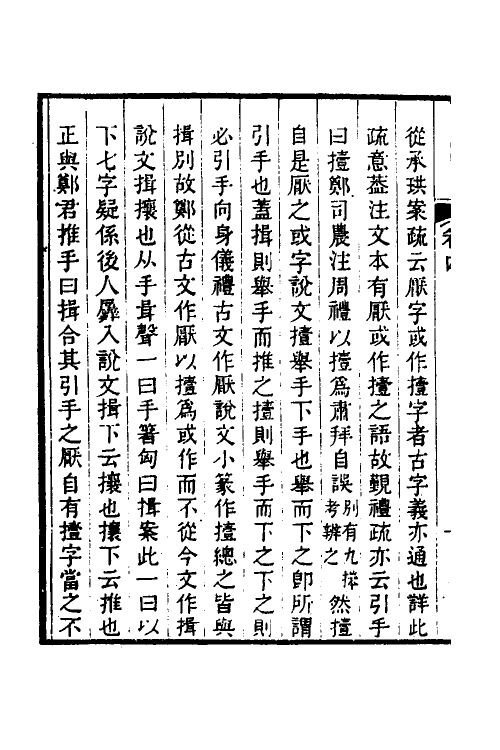 從承珙案疏云厭字或作撎字者古字義亦通也詳此
疏意葢注文本有厭或作撎之語故覲禮疏亦云引手
曰撎鄭司農注周禮以撎爲肅拜自誤別有九𢷎考辨之然撎
自是厭之或字說文撎舉手下手也舉而下之卽所謂
引手也蓋揖則舉手而推之撎則舉手而下之下之則
必引手向身儀禮古文作厭說文小篆作撎總之皆與
揖別故鄭從古文作厭以撎爲或作而不從今文作揖
說文揖攘也从手咠聲一曰手箸匈曰揖案此一曰以
下七字疑係後人羼入說文揖下云攘也攘下云推也
正與鄭君推手曰揖合其引手之厭自有撎字當之不